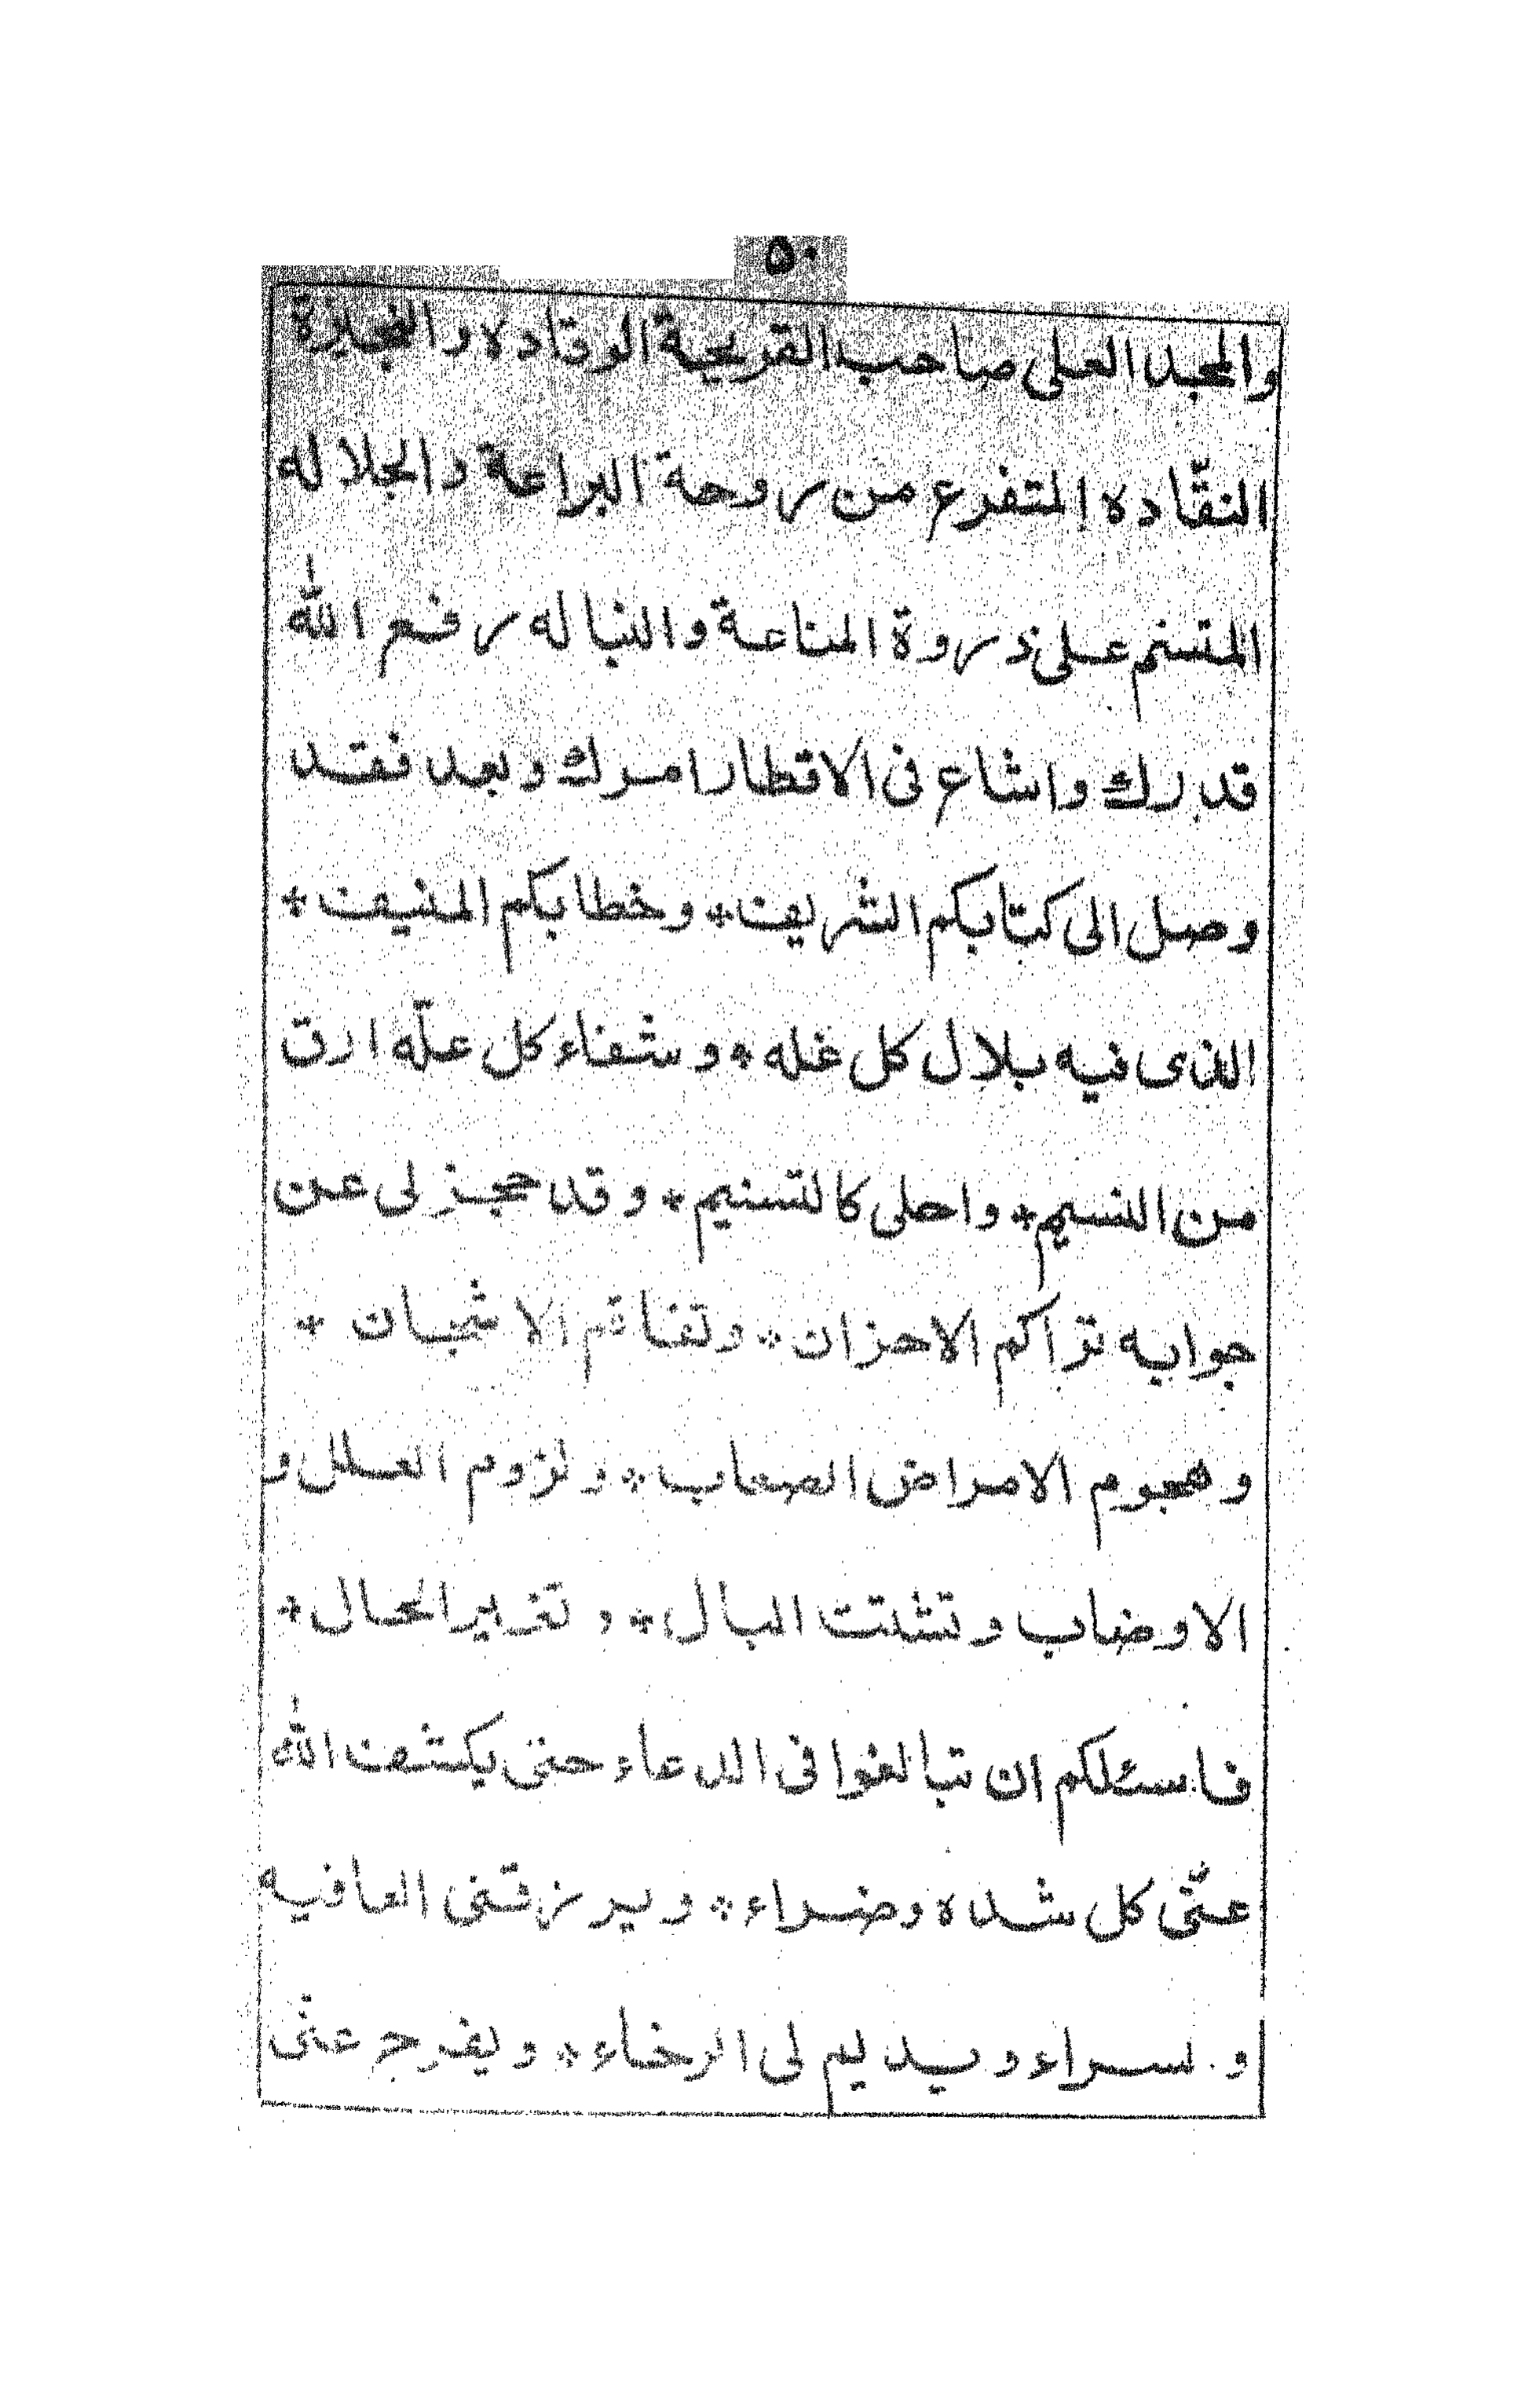 ٥٠
والمجد العلى صاحب القريحية الوقاده و النجيزة
النقّاده المتفرع من روحة البراعة والجلاله
المتسنم على ذروة المناعة والنباله رفع الله
قدرك واشاع فى الاقطار امرك وبعد فقد
وصل الى كتابكم الشريف * وخطابكم المنيف *
الذى فيه بلال كل غله * وشفاء كل علّه ارق
من النسيم * واحلى كالتسنيم * وقد حجز لى عن
جوابه تراكم الاحزان * وتفاقم الاشجان *
وهجوم الامراض الصعاب * ولزوم العلل و
الاوضاب وتشتت البال * و تغيير الحال *
فاسئلكم ان تبالغوا فى الدعاء حتى يكشف الله
عنّى كل شده وضراء * ويرزقنى العافيه
و سراء ويديم لى الرخاء * ويفرج عنّى